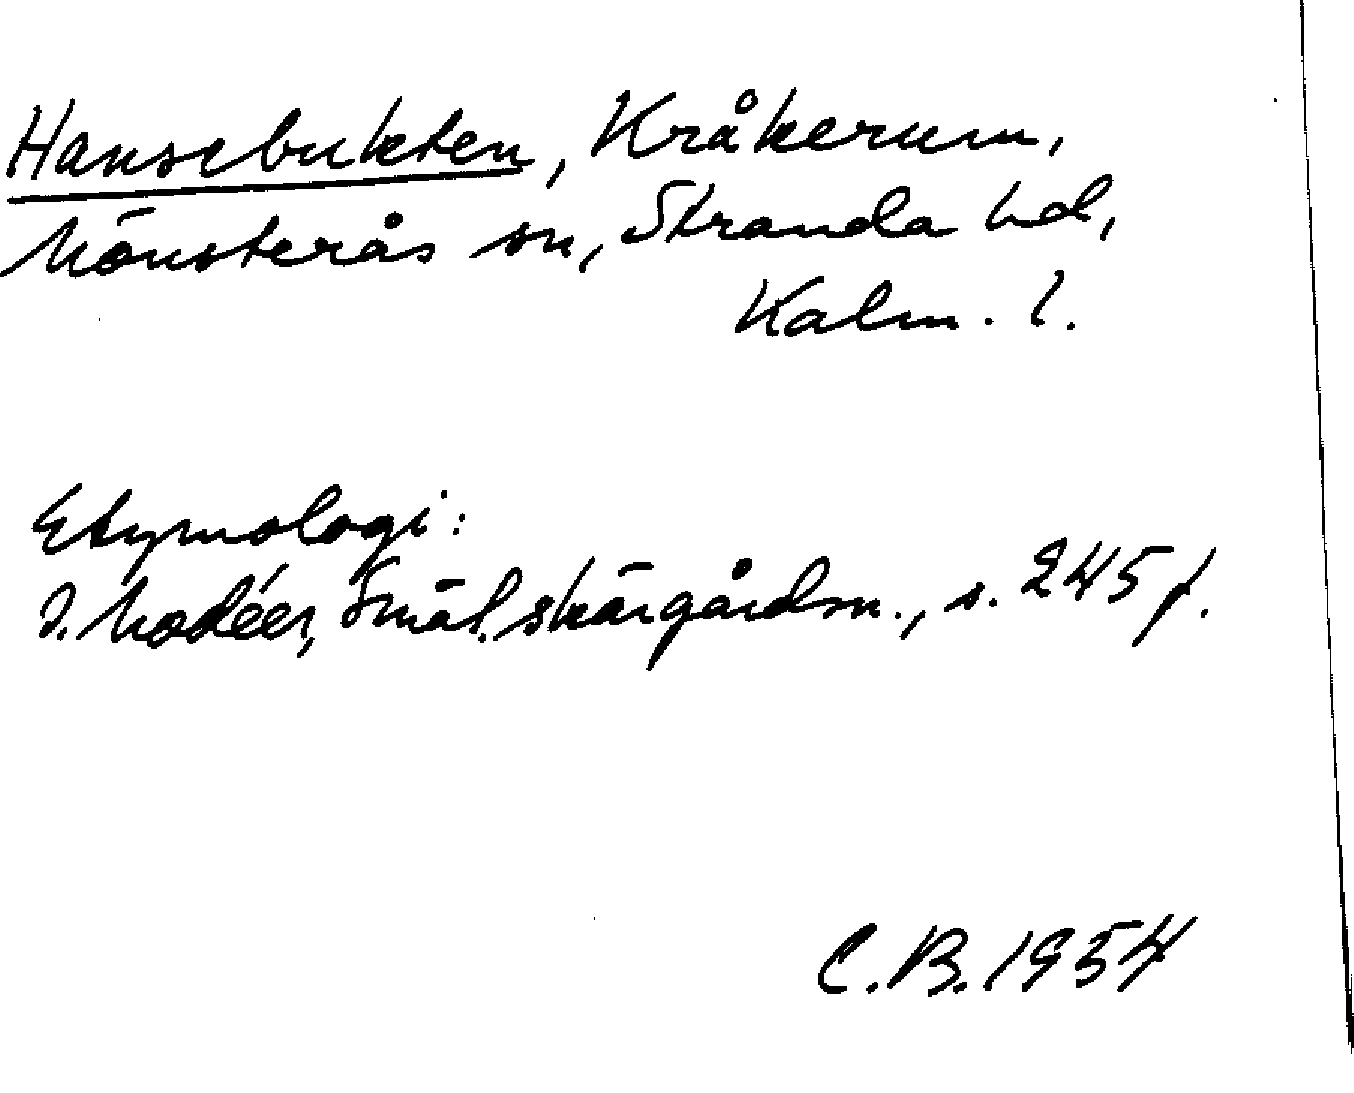 Hansebukten, Kråkerum,
Mönsterås sn, Stranda hd,
Kalm. l.
Etymologi:
I. Modéer, Smål. skärgårdsn., s. 245 f.
C.B. 1954